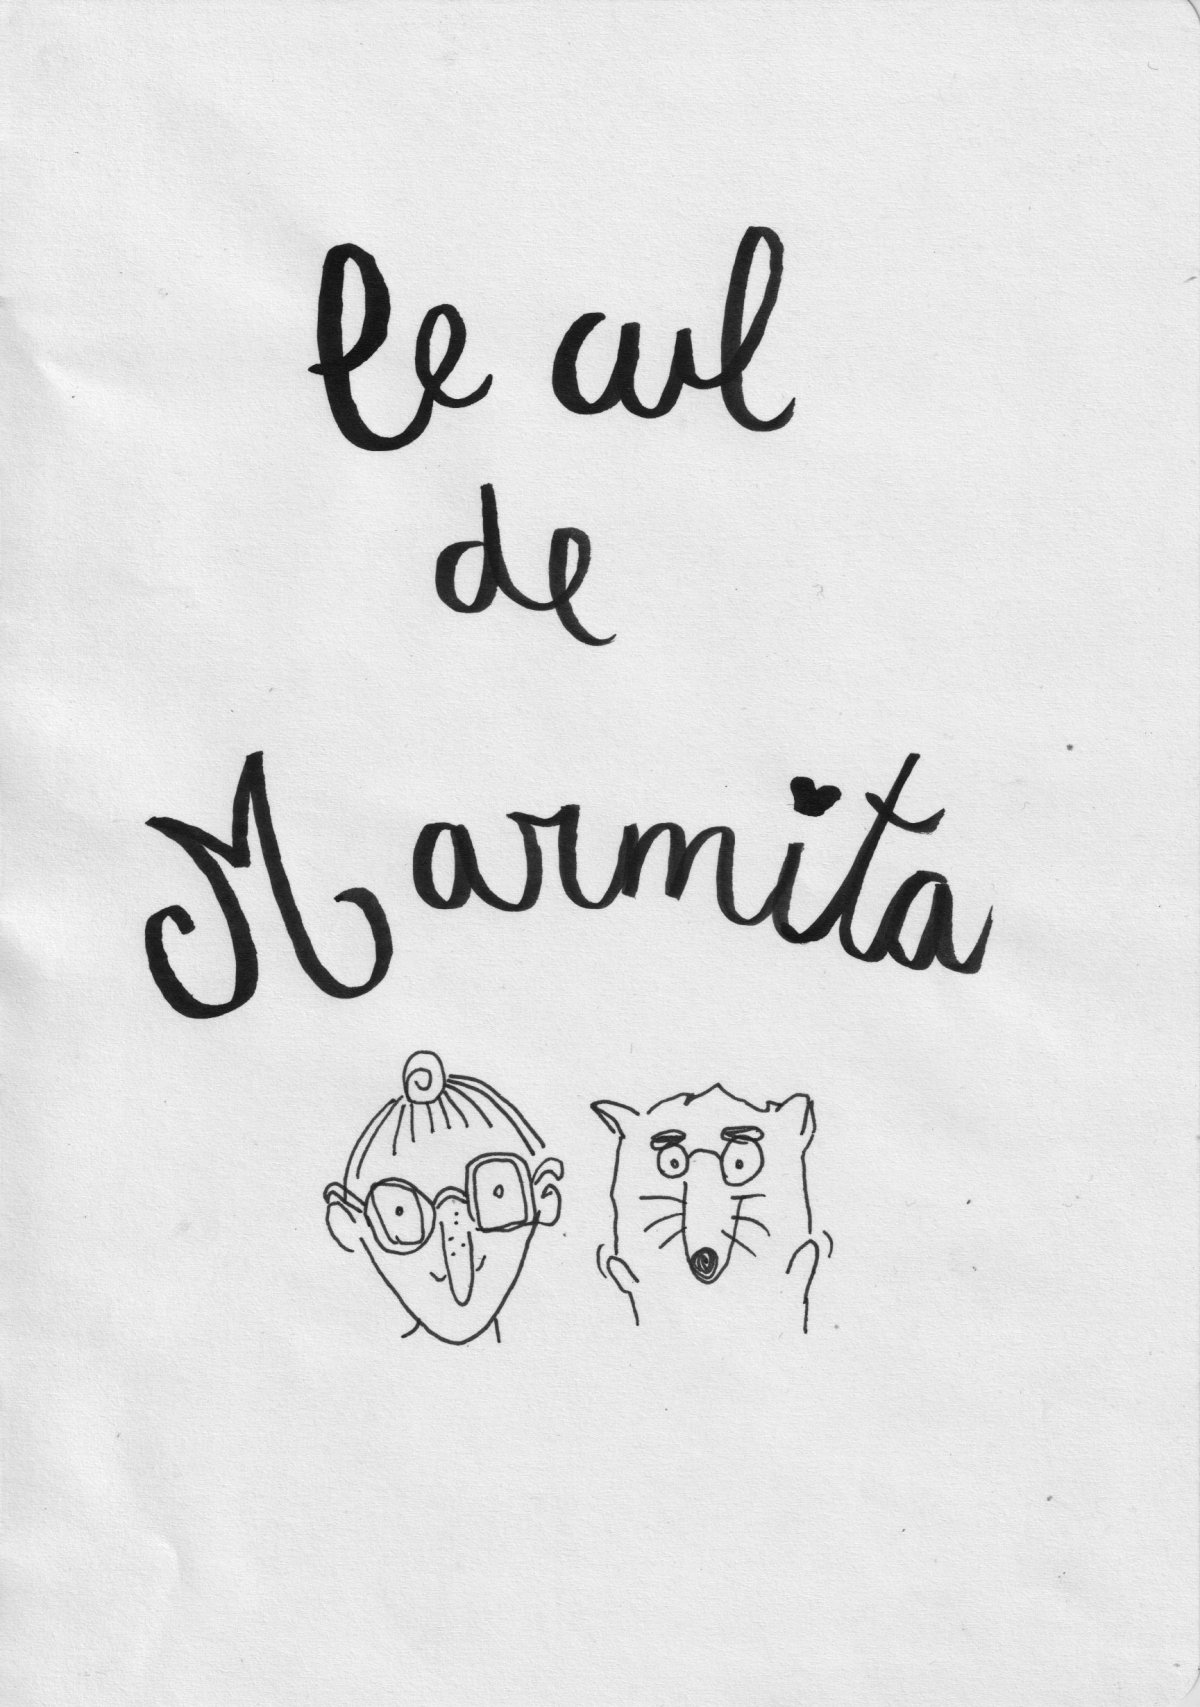 le cul
de
Marmita